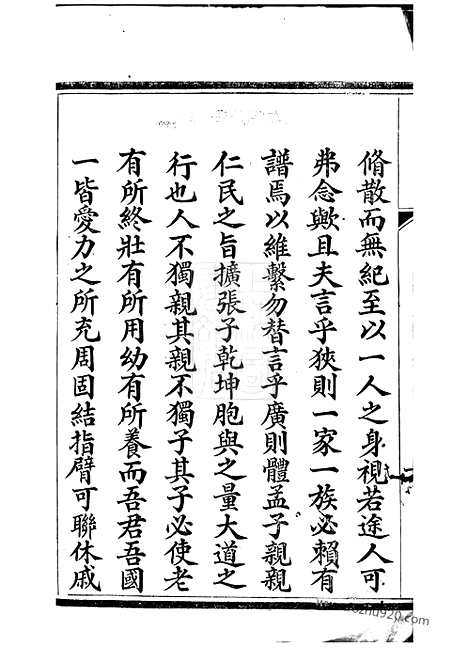 脩散而無紀至以一人之身視若途人可
弗念歟且夫言乎狹則一家一族必賴有
譜焉以維繫勿替言乎廣則體孟子親親
仁民之旨擴張子乾坤胞與之量大道之
行也人不獨親其親不獨子其子必使老
有所終壯有所用幼有所養而吾君吾國
一皆愛力之所充周固結指臂可聯休戚